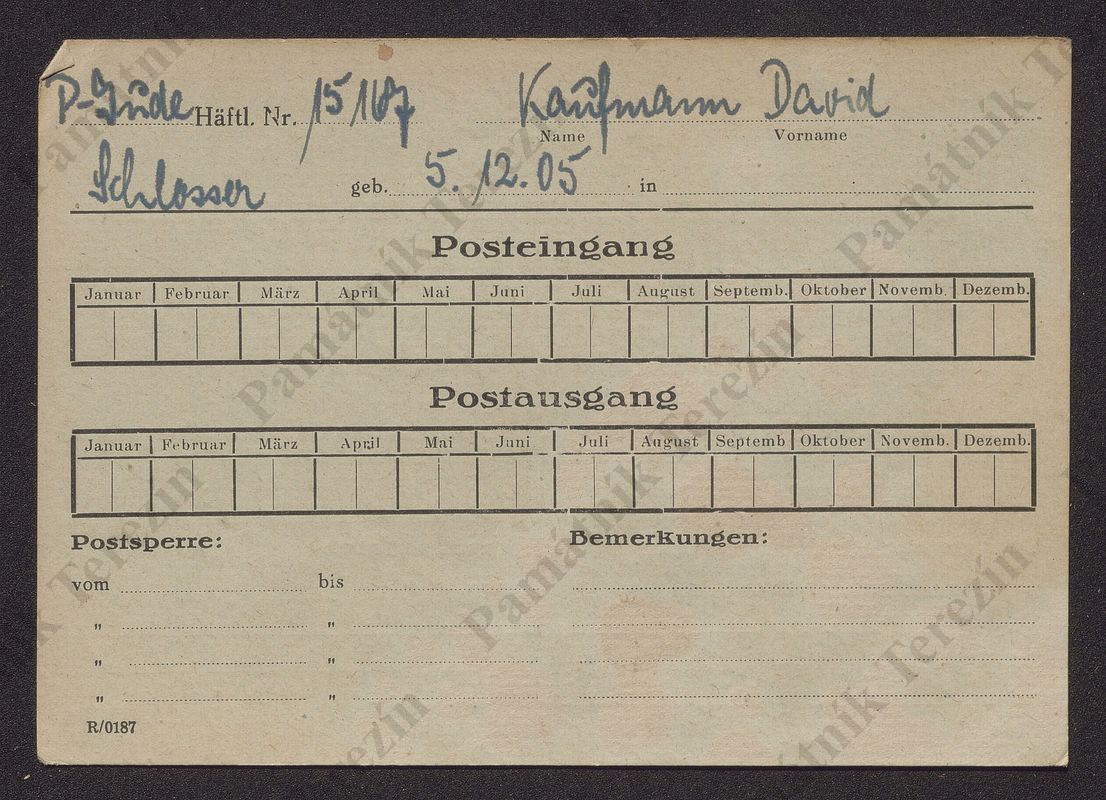 P-Jude Häftl. Nr. 15 1187 Kaufmann David
Name Vorname
Schlosser geb. 5. 12. 05 in
Posteingang
Januar Februar März April Mai Juni Juli August Septemb. Oktober Novemb. Dezemb.
Postausgang
Januar Februar März April Mai Juni Juli August Septemb Oktober Novemb. Dezemb.
Postsperre: Bemerkungen:
vom bis
" "
" "
" "
R/0187
Památník Terezín